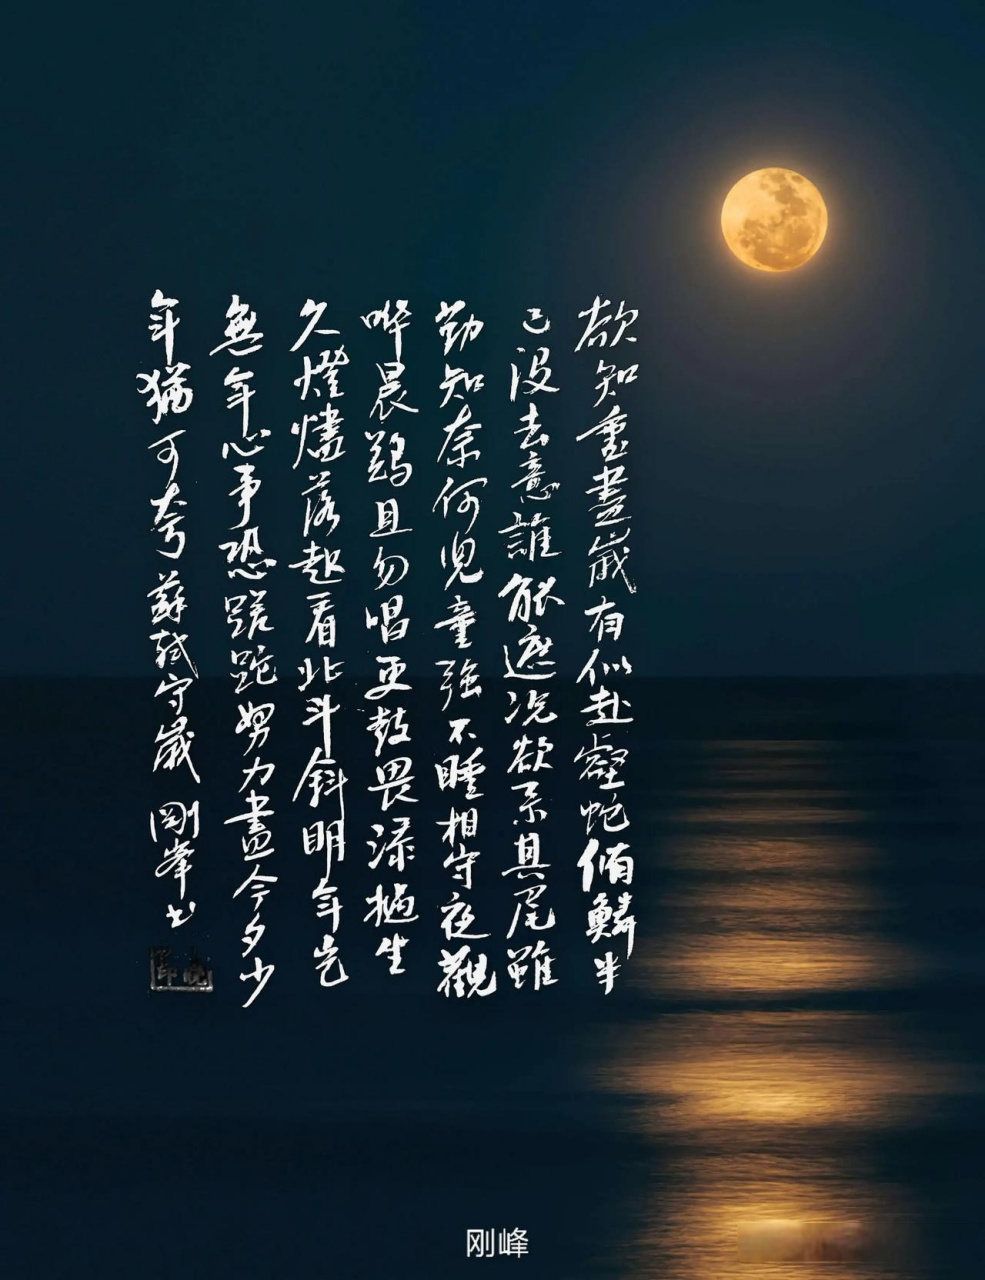 欲知垂盡歲有似赴壑蛇脩鱗半
已没去意誰能遮况欲系其尾雖
勤知奈何児童強不睡相守夜觀
嘩晨鷄且勿唱更鼓畏添撾坐
久燈燼落起看北斗斜明年豈
無年心事恐蹉跎努力盡今夕少
年猶可夸 蘇軾守歲 剛峯书
刚峰